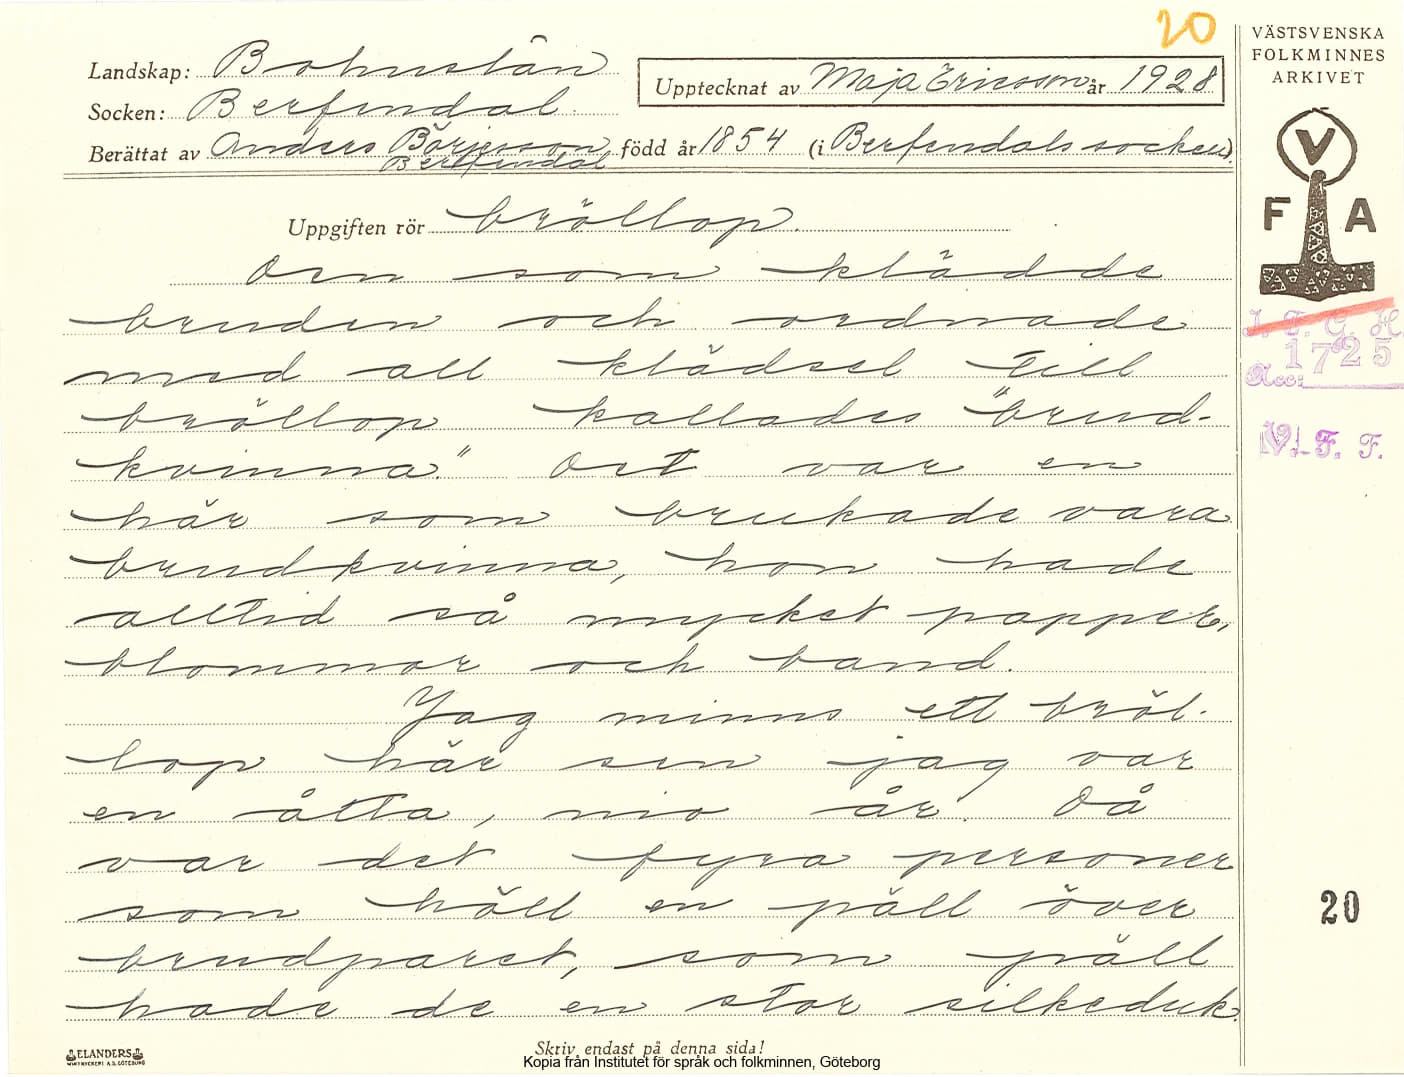 20
VÄSTSVENSKA
FOLKMINNES
ARKIVET
Landskap: Bohuslän
Upptecknat av Maja Ericsson år 1928
Socken: Berfendal
Berättat av Anders Börjesson född år 1854 (i Berfendals socken).
Berfendal
V
F A
Uppgiften rör bröllop.
Den som klädde
bruden och ordnade
med all klädsel till
bröllop kallades "brud-
kvinna." Det var en
här som brukade vara
brudkvinna, hon hade
alltid så mycket papper,
blommor och band.
Jag minns ett bröl-
lop här sen jag var
en åtta, nio år. Då
var det fyra personer
som höll en päll över
brudparet, som päll
hade de en stor silkeduk.
I. F. G. H.
1725
Acc:
V. F. F.
20
ELANDERS
BOKTRYCKERI A.B. GÖTEBORG
Skriv endast på denna sida!
Kopia från Institutet för språk och folkminnen, Göteborg